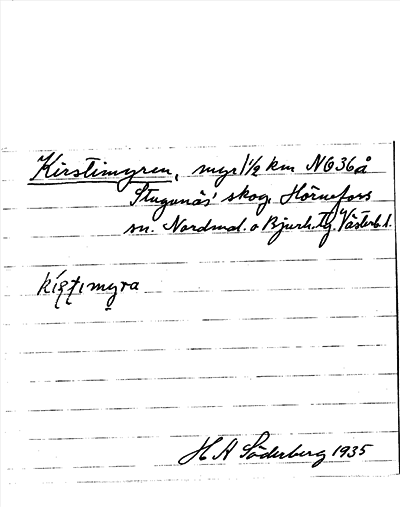 Kirstimyren, myr 1½ km NO 36 å
Stugunäs' skog, Hörnefors
sn. Nordmal. o Bjurh. Tg. Västerb. l.
kı́ṣṭımyra
H A Söderberg 1935